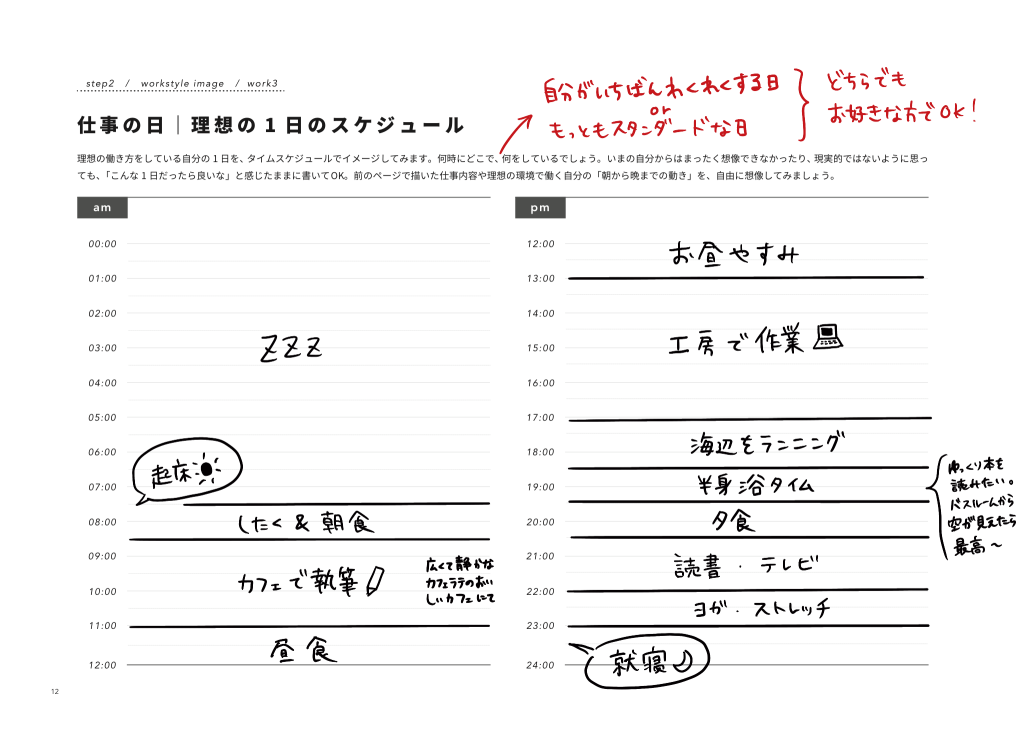 step2 / workstyle image / work3
自分がいちばんわくわくする日
or
もっともスタンダードな日
どちらでも
お好きな方でOK!
仕事の日｜理想の1日のスケジュール
理想の働き方をしている自分の1日を、タイムスケジュールでイメージしてみます。何時にどこで、何をしているでしょう。いまの自分からはまったく想像できなかったり、現実的ではないように思っ
ても、「こんな1日だったら良いな」と感じたままに書いてOK。前のページで描いた仕事内容や理想の環境で働く自分の「朝から晩までの動き」を、自由に想像してみましょう。
am
00:00
01:00
02:00
03:00
ZZZ
04:00
05:00
06:00
起床
07:00
08:00
したく & 朝食
09:00
カフェで執筆
広くて静かな
カフェラテのおい
しいカフェにて
10:00
11:00
昼食
12:00
pm
12:00
お昼やすみ
13:00
14:00
15:00
工房で作業
16:00
17:00
18:00
海辺をランニング
19:00
半身浴タイム
ゆっくり本を
読みたい。
バスルームから
空が見えたら
最高〜
20:00
夕食
21:00
読書・テレビ
22:00
ヨガ・ストレッチ
23:00
就寝
24:00
12